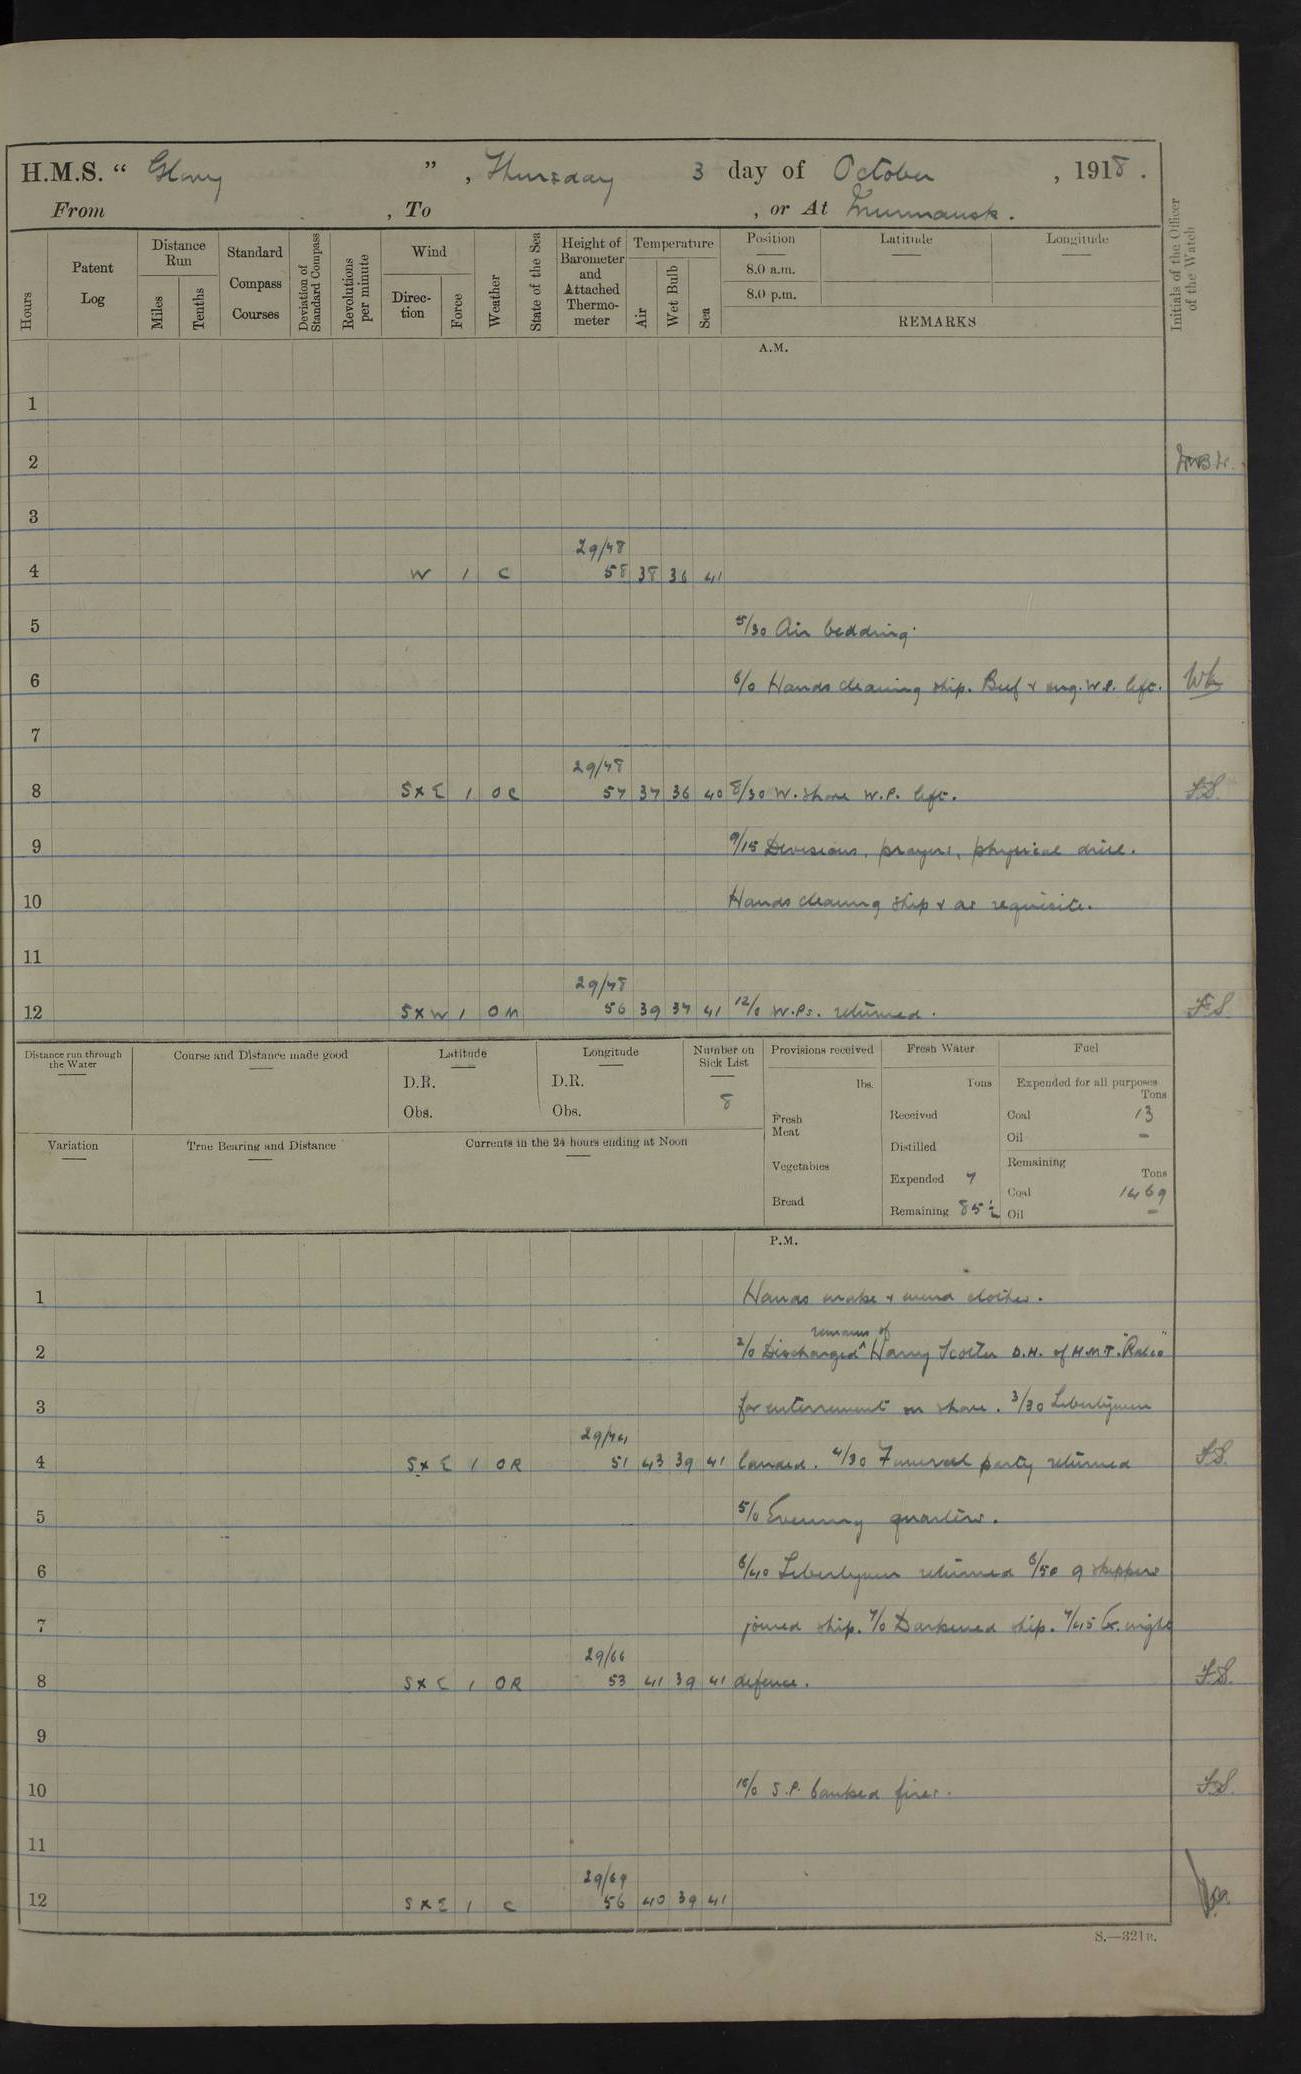 H.M.S. "Glory", Thursday 3 day of October, 1918.
From , To , or At Murmansk.
Hours
Patent Log
Distance Run
Miles
Tenths
Standard Compass Courses
Deviation of Standard Compass
Revolutions per minute
Wind
Direction
Force
Weather
State of the Sea
Height of Barometer and Attached Thermometer
Temperature
Air
Wet Bulb
Sea
Position
8.0 a.m.
8.0 p.m.
Latitude
Longitude
REMARKS
Initials of the Officer of the Watch
A.M.
1
2
3
29/48
4 W 1 C 58 38 36 41
5 5/30 Air bedding.
6 6/0 Hands cleaning ship. Beef & eng. W.P. left.
7
29/48
8 S x E 1 O C 57 37 36 40 8/30 W. shore W.P. left. F.S.
9 9/15 Divisions, prayers, physical drill.
10 Hands cleaning ship & as requisite.
11
29/48
12 S x W 1 O M 56 39 37 41 12/0 W.Ps. returned. F.S.
Distance run through the Water
Course and Distance made good
Latitude
D.R.
Obs.
Longitude
D.R.
Obs.
Number on Sick List
8
Provisions received
lbs.
Fresh Meat
Vegetables
Bread
Fresh Water
Tons
Received
Distilled
Expended 7
Remaining 85½
Fuel
Expended for all purposes
Tons
Coal 13
Oil -
Remaining
Tons
Coal 1469
Oil -
Variation
True Bearing and Distance
Currents in the 24 hours ending at Noon
P.M.
1 Hands make & mend clothes.
remains of
2 2/0 Discharged ^ Harry D.H. of H.M.T.
3 for interrement on shore. 3/30 Libertymen
29/44
4 S x E 1 O R 51 43 39 41 landed. 4/30 Funeral party returned F.S.
5 5/0 Evening quarters.
6 6/40 Libertymen returned 6/50 9 skippers
7 joined ship. 7/0 Darkened ship. 7/45 Ex. night
29/66
8 S x E 1 O R 53 41 39 41 defence. F.S.
9
10 10/0 S.P. banked fires. F.S.
11
29/69
12 S x E 1 C 56 40 39 41
S.—321B.